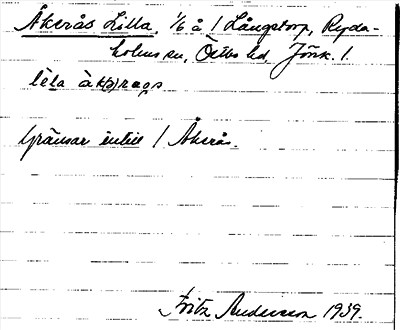 Åkerås Lilla, 1/6 å / Långstorp, Ryda-
holms sn, Östbo hd, Jönk. l.
lɛ̀la å̀k(ə)raɐs
Gränsar intill / Åkerås.
Fritz Andersson 1939.